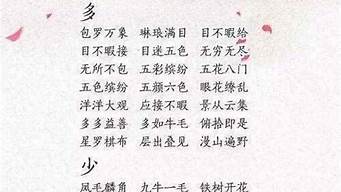 多
包罗万象 琳琅满目 目不暇给
目不暇接 目迷五色 无穷无尽
无所不包 五彩缤纷 五花八门
五色缤纷 五颜六色 眼花缭乱
洋洋大观 应接不暇 景从云集
多多益善 多如牛毛 俯拾即是
星罗棋布 层出叠见 漫山遍野
少
凤毛麟角 九牛一毛 铁树开花